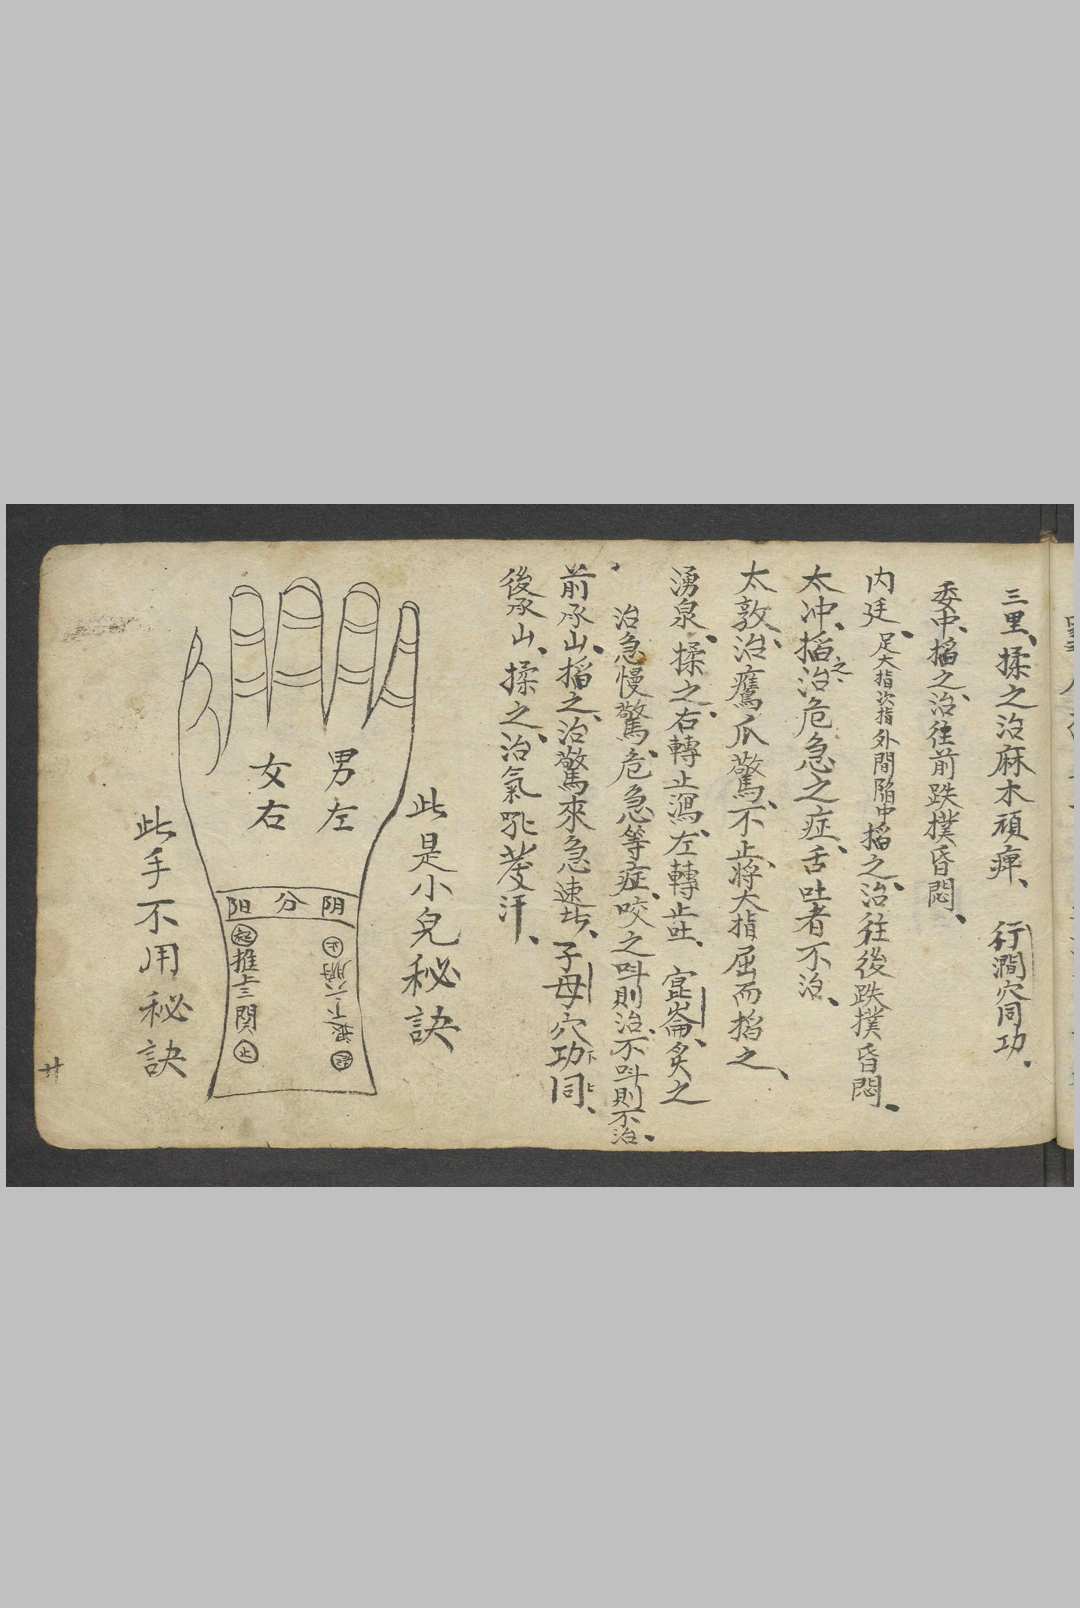 三里、揉之治麻木頑痺、 行澗穴同功、
委中、搯之、治往前跌撲昏悶、
内廷、足大指次指外間陷中搯之、治往後跌撲昏悶、
太冲、搯之治危急之症、舌吐者不治、
太敦、治鷹爪驚、不止、將大指屈而搯之、
湧泉、揉之、右轉止瀉、左轉止吐、 崑崙、炙之
治急慢驚、危急等症、咬之叫則治、不叫則不治、
前承山、搯之、治驚來急速者、子母穴功同、
後承山、揉之、治氣吼發汗、
此是小兒秘訣
男左
女右
阴分阳
起推上三関止
起退下六腑止
此手不用秘訣
廿